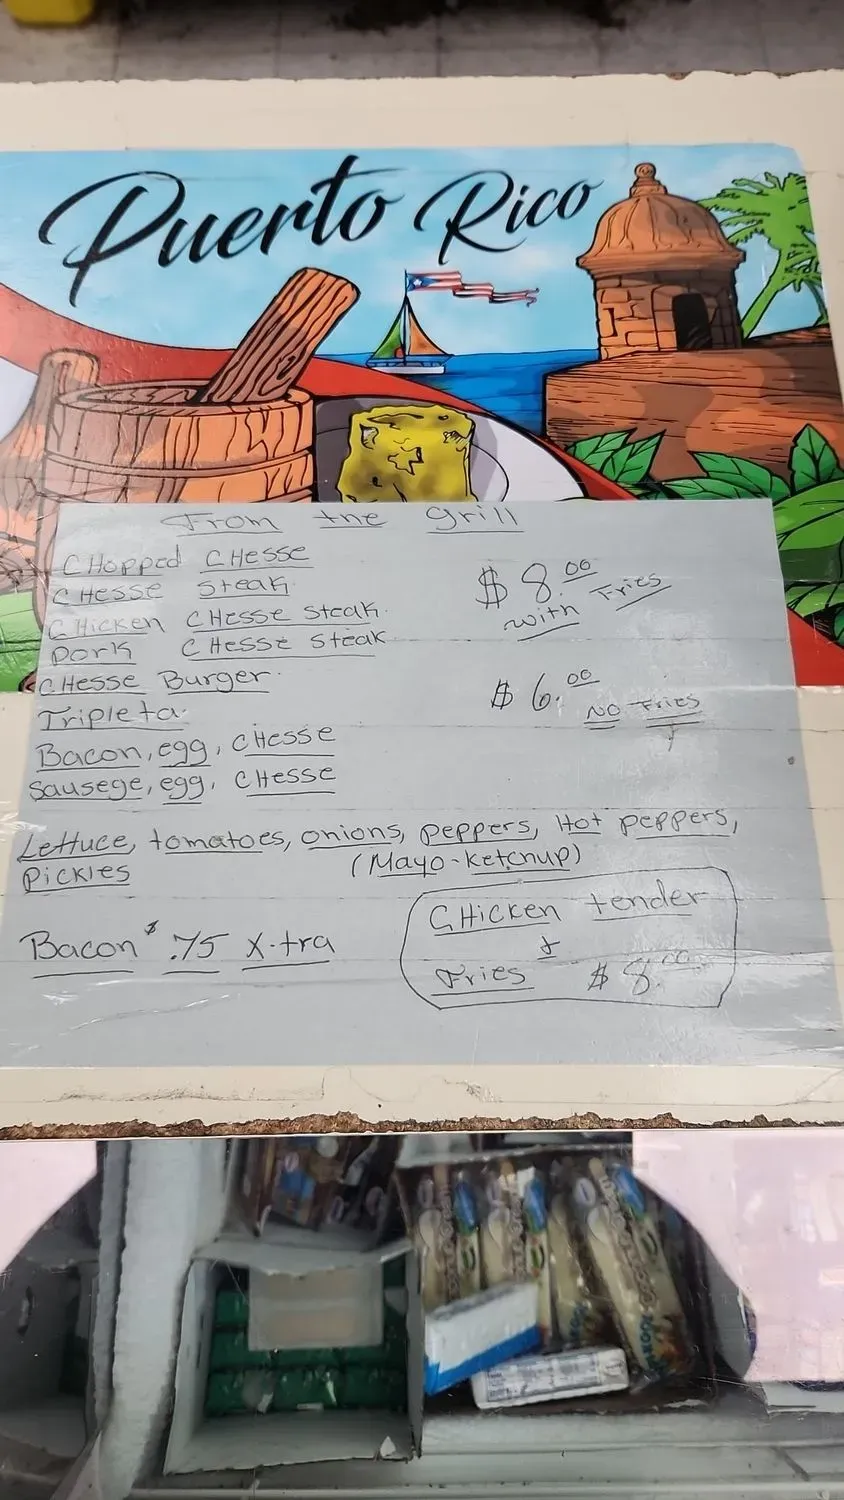 Puerto Rico
From the grill
CHopped CHesse
CHesse steak
CHicken CHesse steak
Pork CHesse steak
CHesse Burger
Tripleta
Bacon, egg, CHesse
Sausege, egg, CHesse
$8.00
with Fries
$6.00
NO Fries
Lettuce, tomatoes, onions, peppers, Hot peppers,
Pickles (Mayo-ketchup)
Bacon $.75 X-tra
CHicken tender
&
Fries $8.00